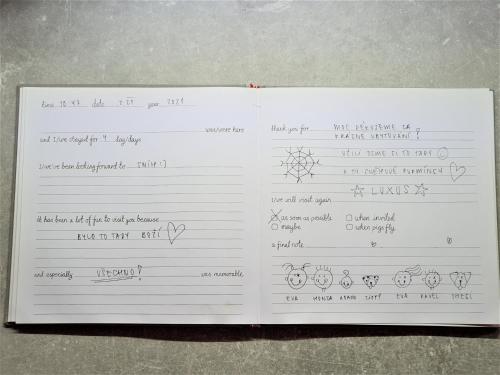 time 10:47 date year 2021
was/were here
and I/we stayed for 4 day/days
I/we've been looking forward to SNÍH :)
it has been a lot of fun to visit you because
BYLO TO TADY BOŽÍ
and especially VŠECHNO! was memorable
thank you for MOC DĚKUJEME ZA
KRÁSNÉ UBYTOVÁNÍ!
UŽILI JSME SI TO TADY
A TY SNĚHOVÉ PODMÍNKY
LUXUS
I/we will visit again
as soon as possible when invited
maybe when pigs fly
a final note
EVA HONZA EVA KAREL